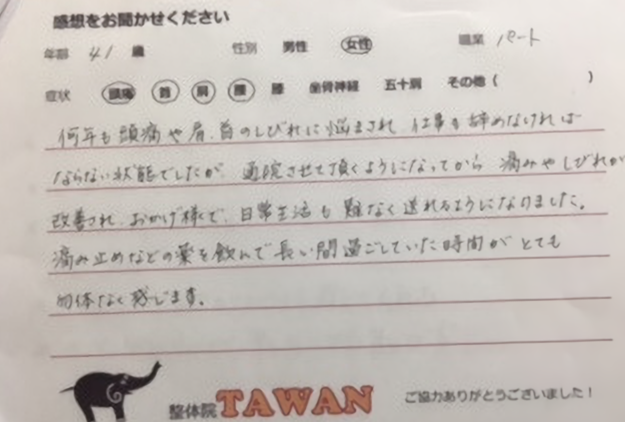 感想をお聞かせください
年齢 41 歳 性別 男性 女性 職業 パート
症状 頭痛 首 肩 腰 膝 坐骨神経 五十肩 その他( )
何年も頭痛や肩、首のしびれに悩まされ、仕事も辞めなければ
ならない状態でしたが、通院させて頂くようになってから 痛みやしびれが
改善され、おかげ様で、日常生活も難なく送れるようになりました。
痛み止めなどの薬を飲んで長い間過ごしていた時間がとても
勿体なく感じます。
整体院 TAWAN ご協力ありがとうございました!